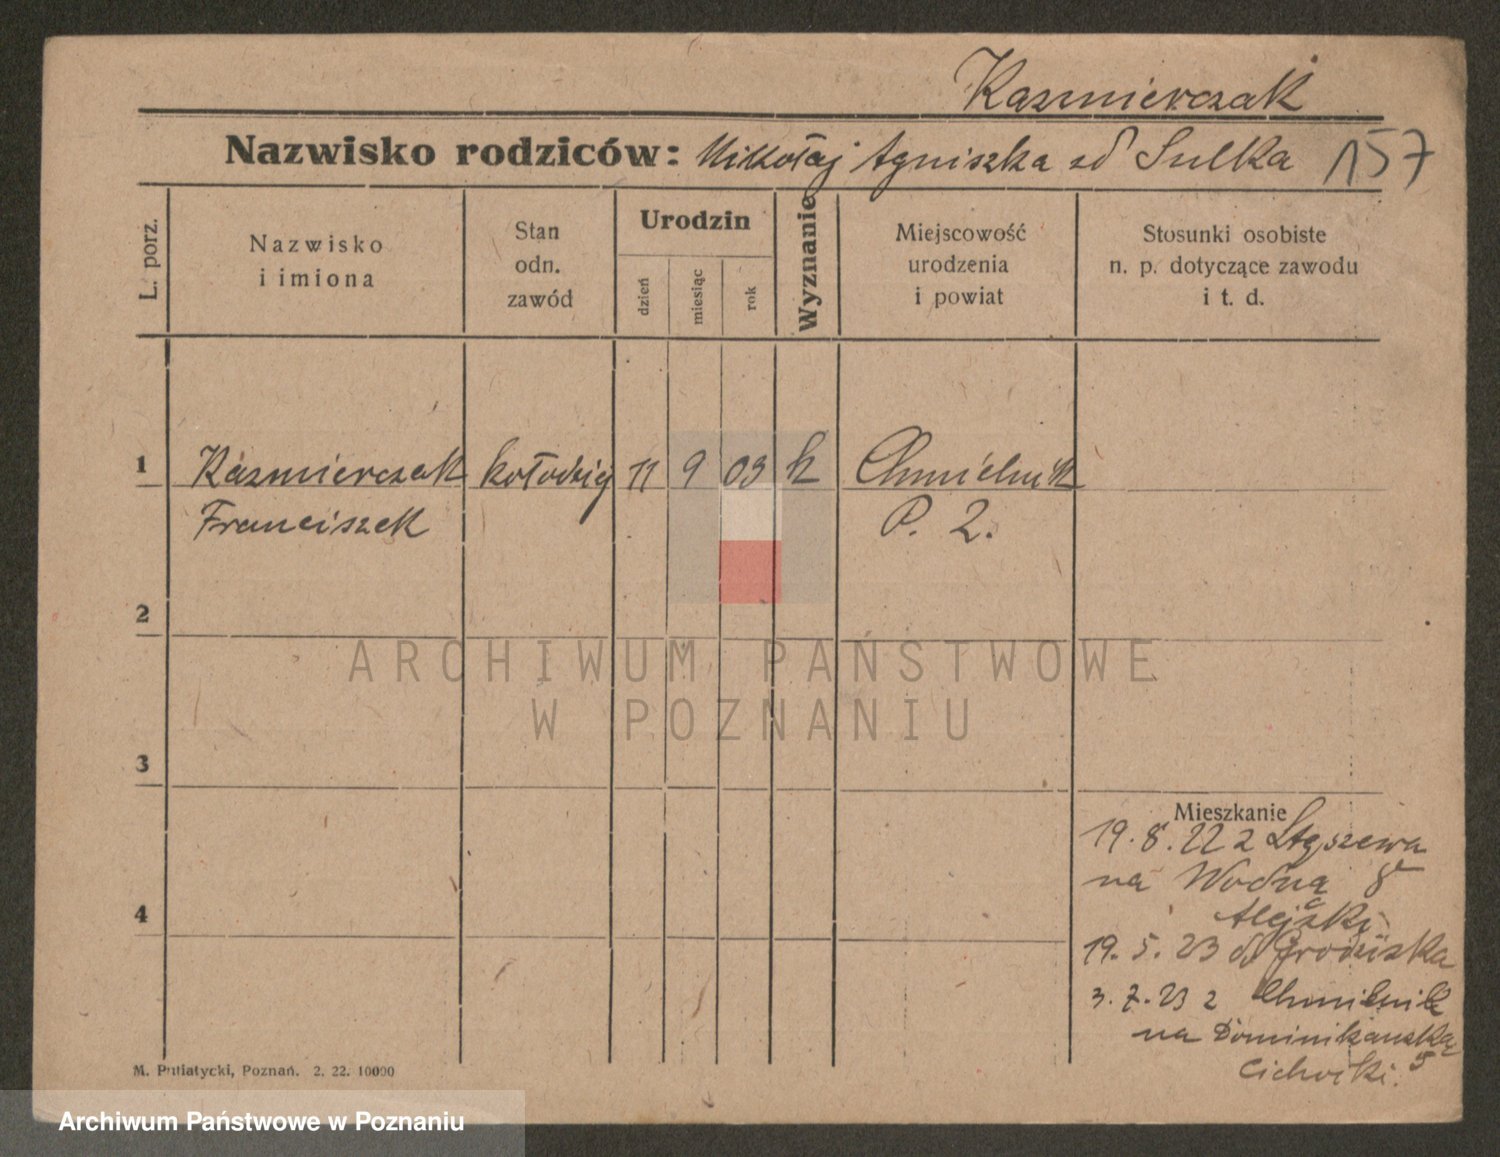 Kazmierczak
Nazwisko rodziców: Mikołaj Agniszka zd Sulka 157
L. porz.
Nazwisko
i imiona
Stan
odn.
zawód
Urodzin
dzień
miesiąc
rok
Wyznanie
Miejscowość
urodzenia
i powiat
Stosunki osobiste
n. p. dotyczące zawodu
i t. d.
1 Kazmierczak kołodziej 11 9 03 k Chmielnik
Franciszek P. Z.
2
ARCHIWUM PAŃSTWOWE
W POZNANIU
3
Mieszkanie
19. 8. 22 z Stęszewa
na Wodną 8
4
19. 5. 23 do Grodziska
3. 7. 23 z Chmielnik
na Dominikańską 5
Cichocki.
M. Putiatycki, Poznań. 2. 22. 10000
Archiwum Państwowe w Poznaniu